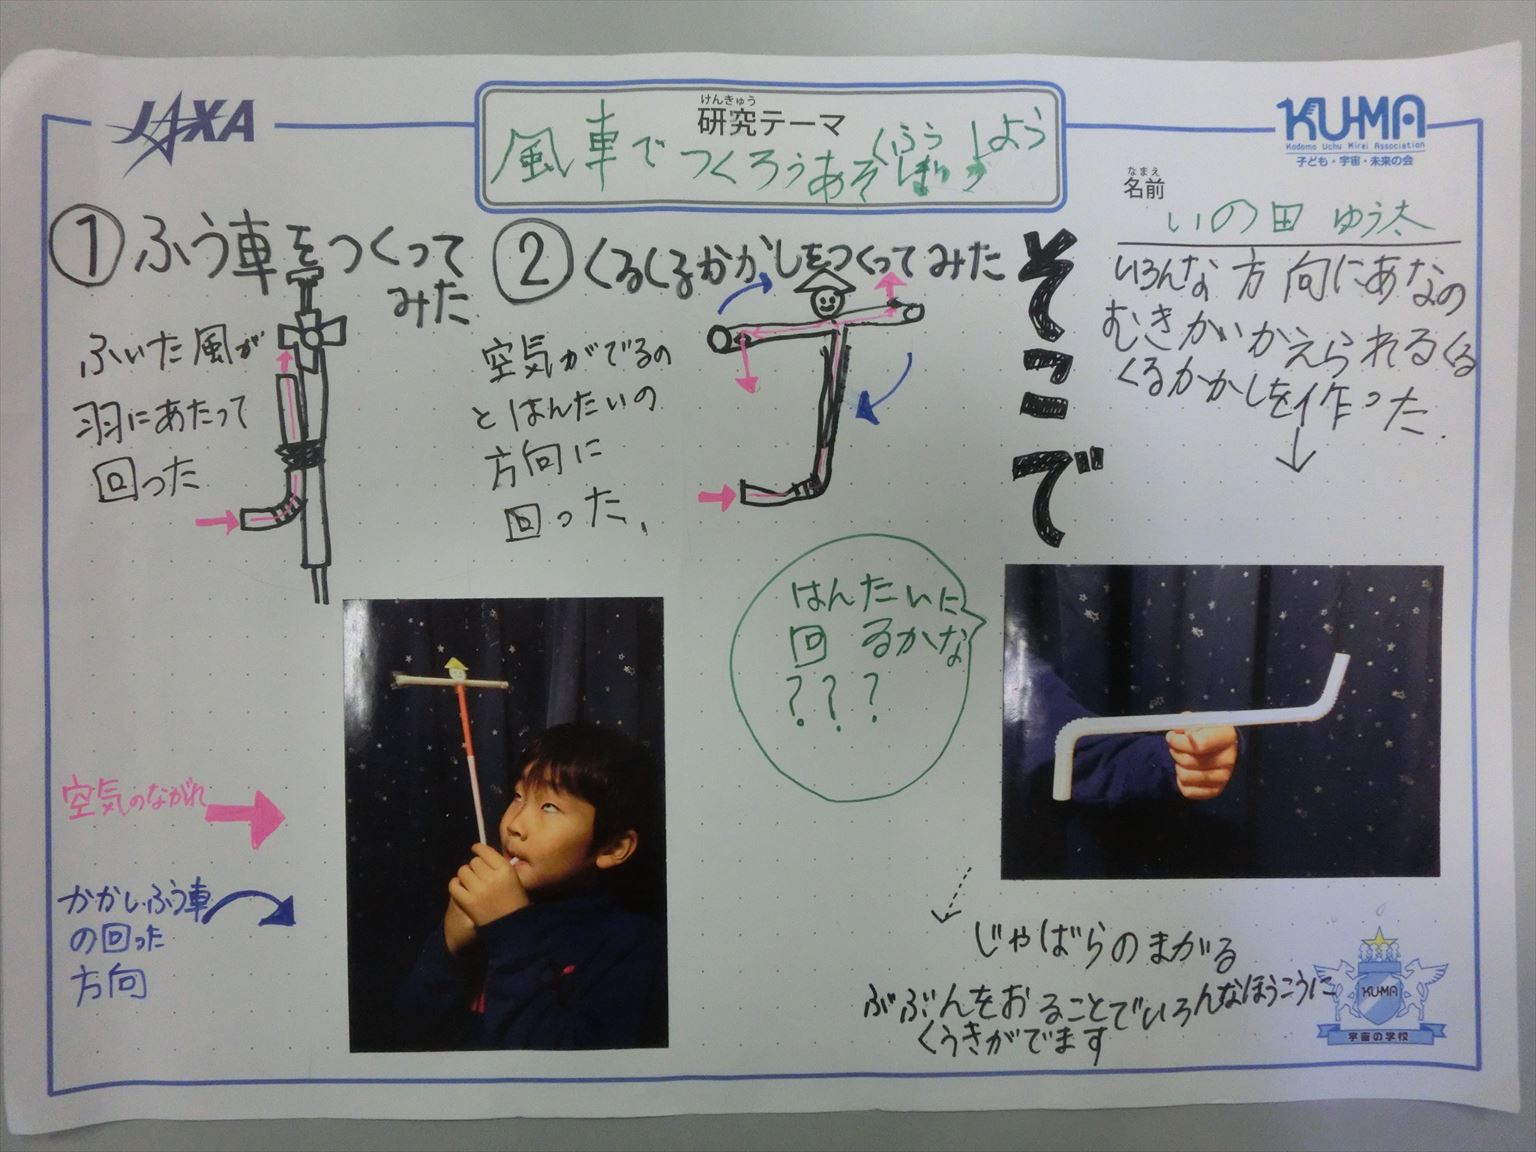 JAXA
けんきゅう
研究テーマ
風車でつくろうあそぼう
くふうしよう
KU-MA
Kodomo Uchu Mirai Association
子ども・宇宙・未来の会
なまえ
名前
いの田 ゆう太
① ふう車をつくって
みた
ふいた風が
羽にあたって
回った
② くるくるかかしをつくってみた
空気がでるの
とはんたいの
方向に
回った、
そこで
いろんな方向にあなの
むきがいかえられるくる
くるかかしを作った.
はんたいに
回るかな
???
空気のながれ
かかし、ふう車
の回った
方向
じゃばらのまがる
ぶぶんをおることでいろんなほうこうに
くうきがでます
KU-MA
宇宙の学校